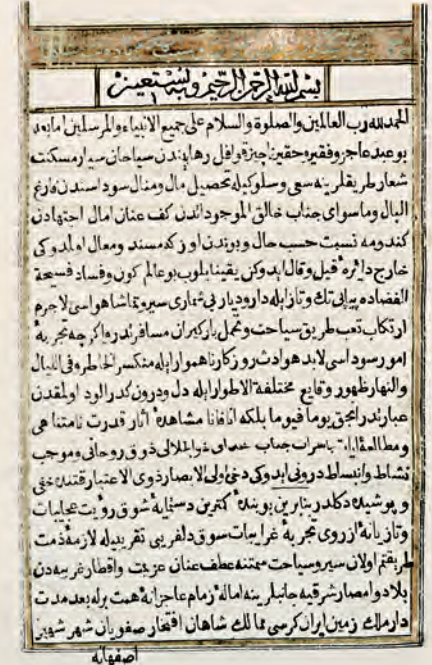 بسم الله الرحمن الرحيم وبه نستعين
الحمد لله رب العالمين والصلوة والسلام على جميع الانبياء والمرسلين اما بعد
بو عبد عاجز وفقير وحقير ناچيز قوافل رهاوندن سياحان سيار مسكنت
شعار طريقلرينه سعى وسلوكيله تحصيل مال ومنال سوداسندن فارغ
البال وماسواى جناب خالق الموجوداتدن كف عنان امال اجتهادن
كندومه نسبت حسب حال و بوندن اوزكه مسند ومعال اولمدوكى
خارج دائرهٔ قيل وقال ايدوكن يقينا بلوب بو عالم كون وفساد فسيحة
الفضاده پياپى تك وتاز ايله دار وديارنى شمارى سير وتماشا هواسى لاجرم
ارتكاب تعب طريق سياحت وتحمل بار كيران مسافرتدر واكرچه تجربهٔ
امور سوداسى لابد هوادث روزكار ناهموار ايله منكسر الخاطر وفى الليال
والنهار ظهور وقايع مختلفة الاطوار ايله دل ودرون كدر الود اولمقدن
عبارتدر انجق يوما فيوما بلكه انا فانا مشاهدهٔ آثار قدرت نامتناهى
ومطالعهٔ جناب ذوق روحانى وموجب
نشاط وانبساط درونى ايدوكى دخى اولى الابصار ذوى الاعتبار قتنده خفى
و پوشيده دكلدر بنابرين بو بندهٔ كمترين دستمايهٔ شوق رؤيت عجايبات
وتازيانهٔ ارزوى تجربهٔ غرايبات سوق دلفريبى تقريبيله لازمهٔ ذمت
طريقتم اولان سير وسياحت ممتنه عطف عنان عزيمت واقطار غربيه دن
بلاد وامصار شرقيه جانبلرينه اماله زمام عاجزانهٔ همت برله بعد مدت
دار ملك زمين ايران كرسى ممالك شاهان افتخار صفويان شهر شهير
اصفهانه